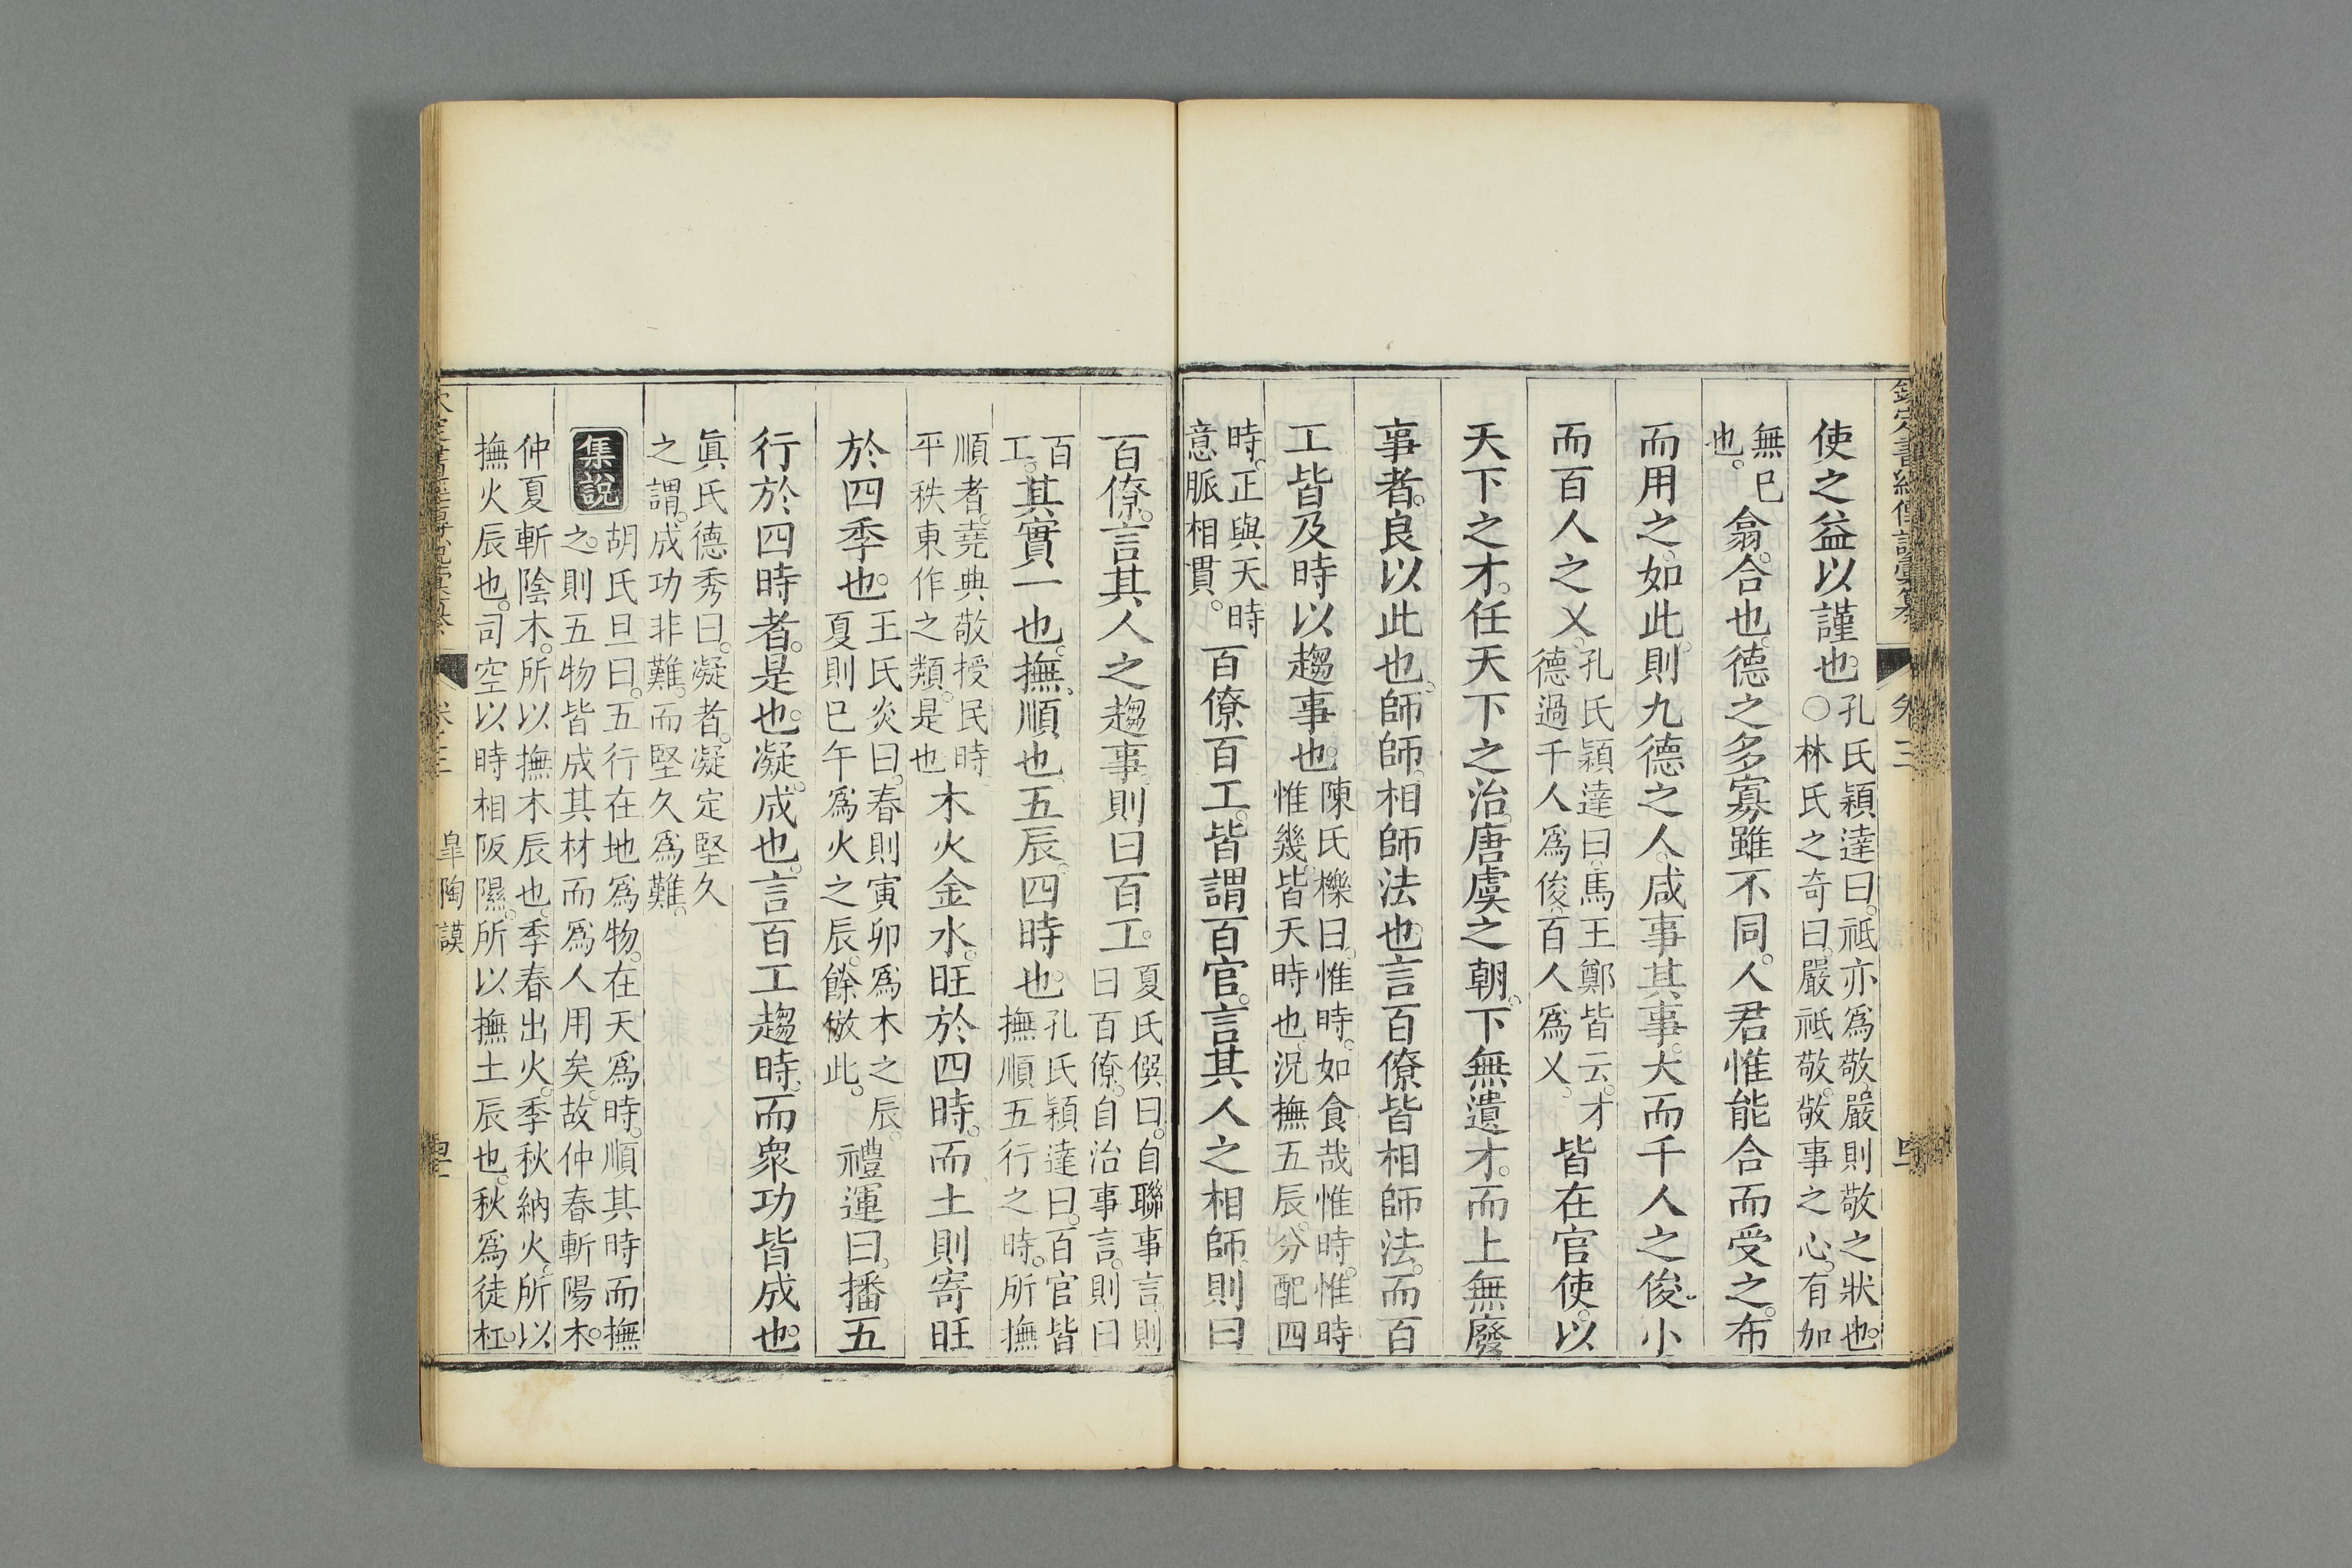 欽定書經傳說彙纂 卷三
使之益以謹也。孔氏穎達曰。祗亦爲敬。嚴則敬之狀也。
○林氏之奇曰。嚴祗敬。敬事之心。有加
無已
也。翕。合也。德之多寡雖不同。人君惟能合而受之。布
而用之。如此。則九德之人。咸事其事。大而千人之俊。小
而百人之乂。孔氏穎達曰。馬王鄭皆云。才
德過千人爲俊。百人爲乂。皆在官使。以
天下之才。任天下之治。唐虞之朝。下無遺才。而上無廢
事者。良以此也。師師。相師法也。言百僚皆相師法。而百
工皆及時以趨事也。陳氏櫟曰。惟時。如食哉惟時。惟時
惟幾。皆天時也。況撫五辰。分配四
時。正與天時
意脈相貫。百僚百工。皆謂百官。言其人之相師。則曰
百僚。言其人之趨事。則曰百工。夏氏僎曰。自聯事言。則
曰百僚。自治事言。則曰
百
工。其實一也。撫。順也。五辰。四時也。孔氏穎達曰。百官皆
撫順五行之時。所撫
順者。堯典敬授民時
平秩東作之類。是也木火金水。旺於四時。而土則寄旺
於四季也。王氏炎曰。春則寅卯爲木之辰。
夏則巳午爲火之辰。餘倣此。禮運曰。播五
行於四時者。是也。凝。成也。言百工趨時。而衆功皆成也。
眞氏德秀曰。凝者。凝定堅久
之謂。成功非難。而堅久爲難。
集說 胡氏旦曰。五行在地爲物。在天爲時。順其時而撫
之。則五物皆成其材而爲人用矣。故仲春斬陽木。
仲夏斬陰木。所以撫木辰也。季春出火。季秋納火。所以
撫火辰也。司空以時相阪隰。所以撫土辰也。秋爲徒杠。
卷三 皐陶謨